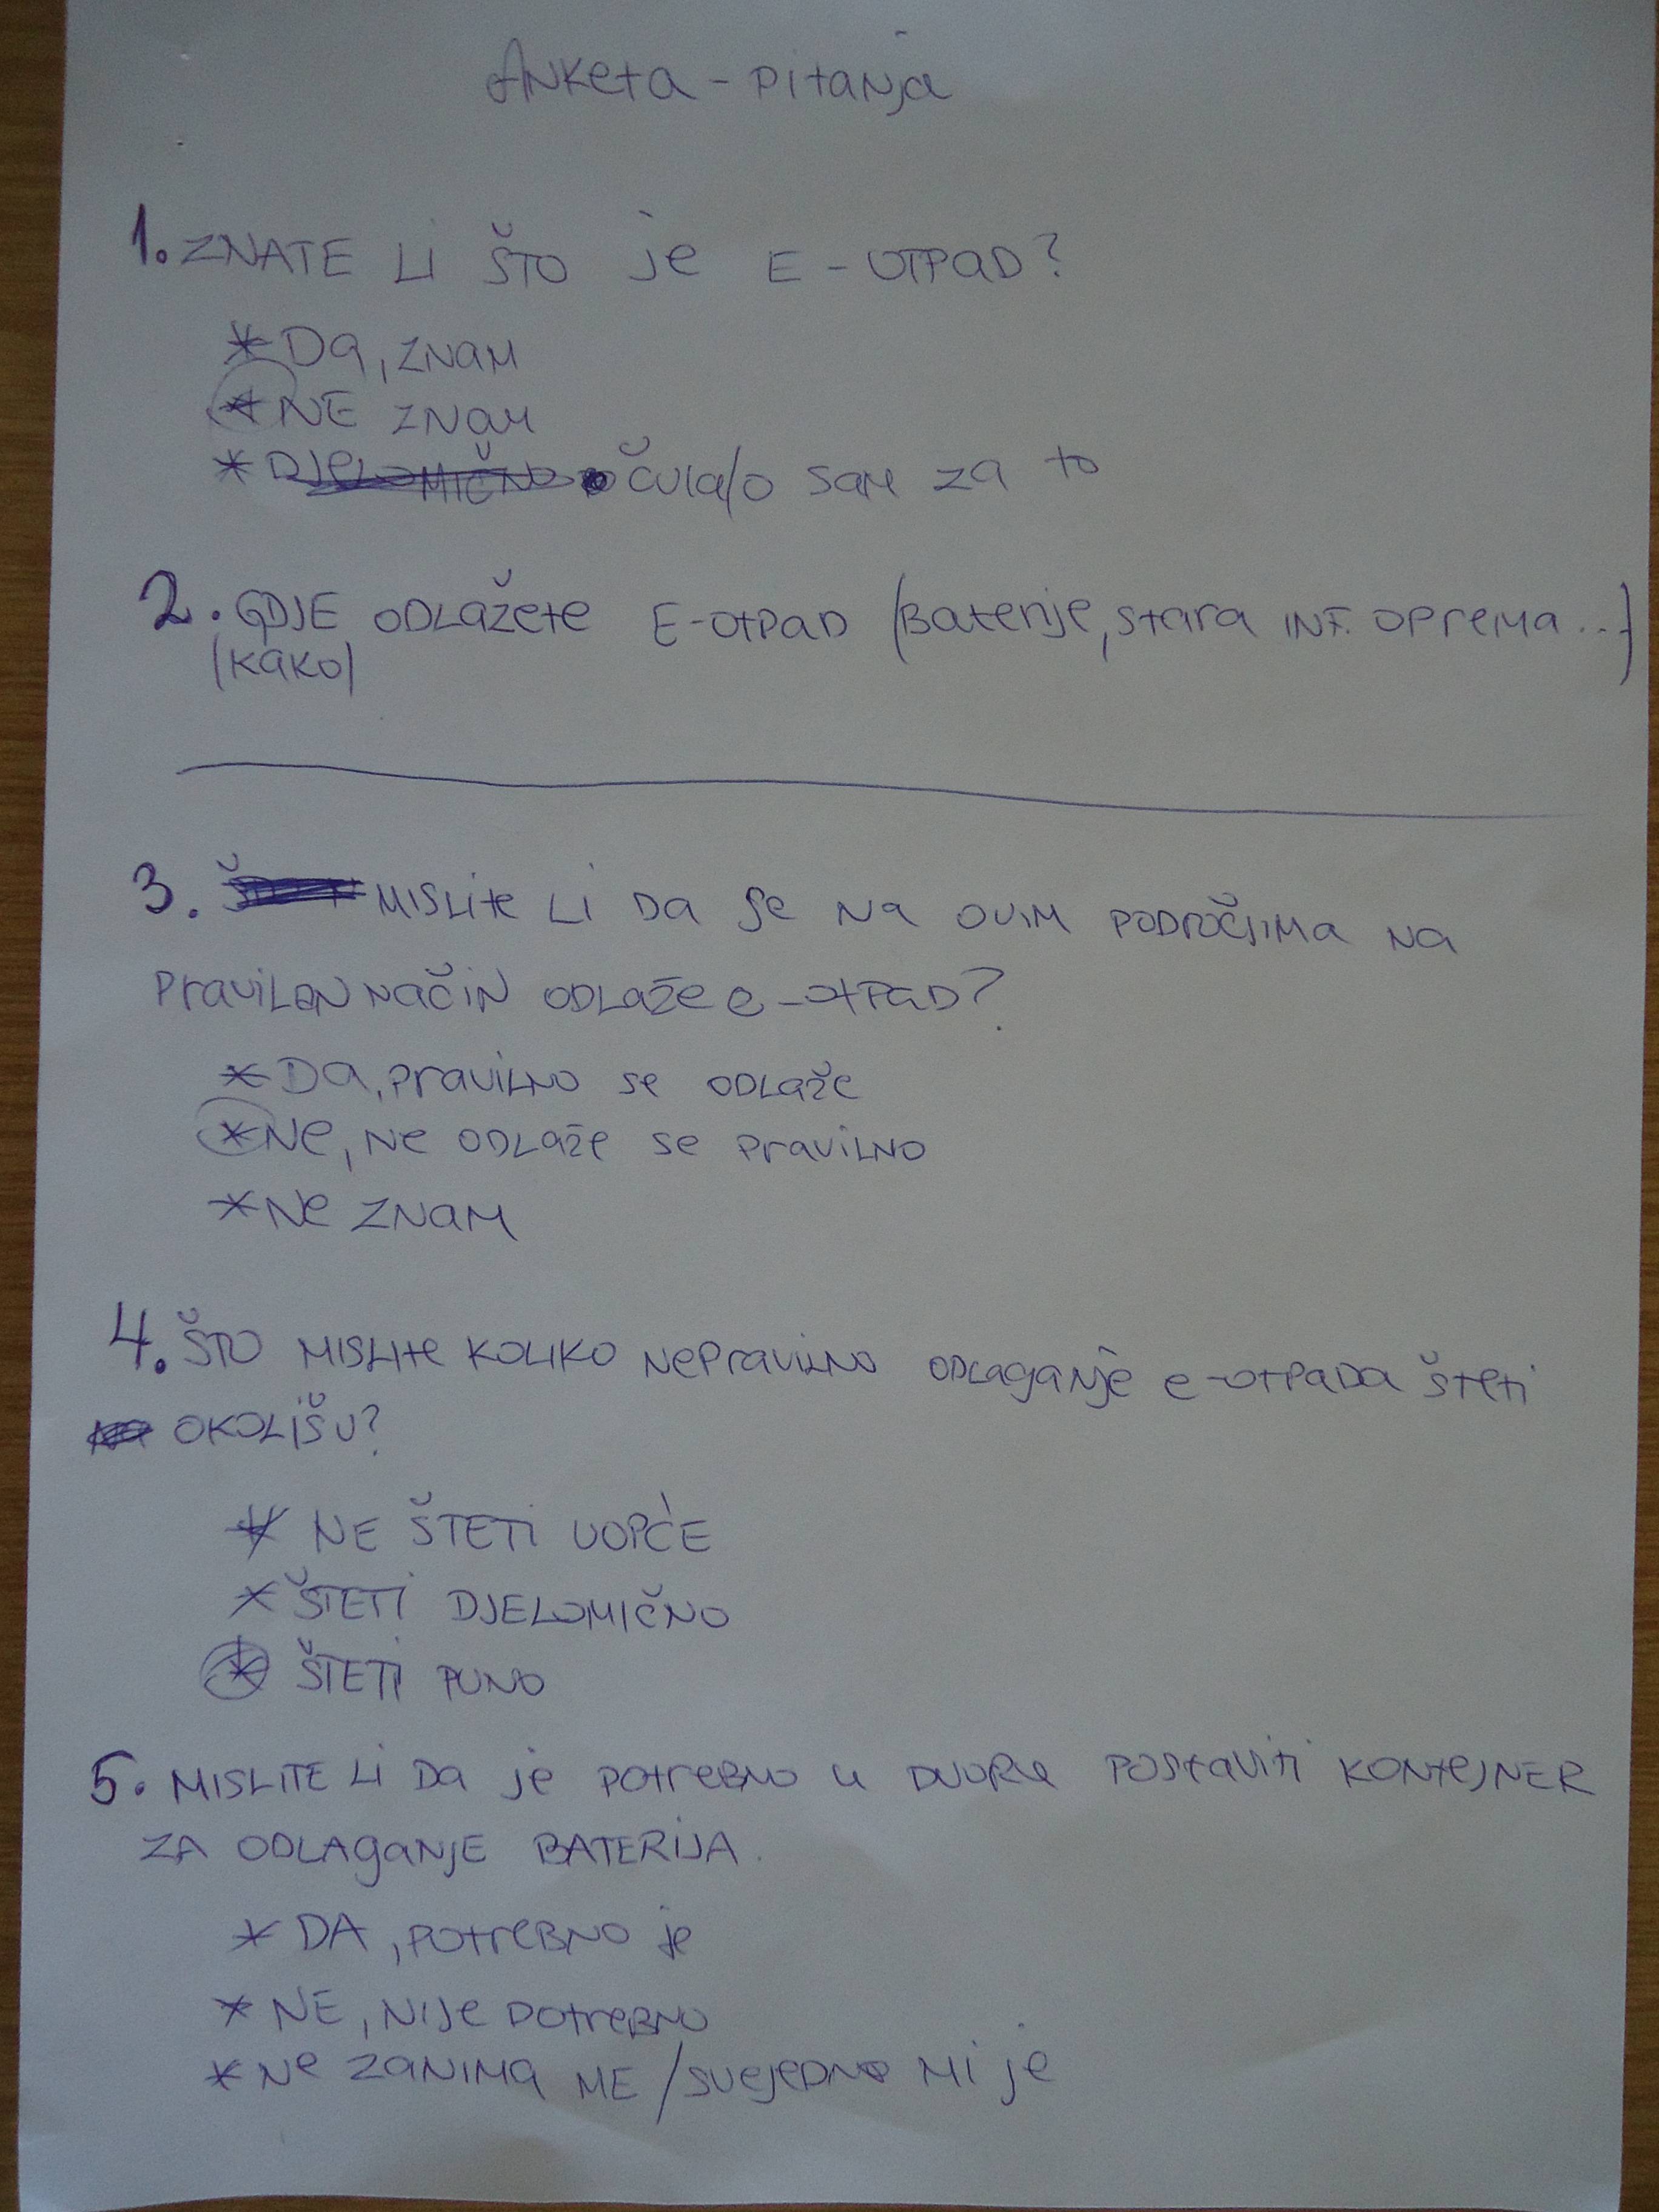 Anketa - pitanja
1. ZNATE LI ŠTO je E-OTPAD?
* Da, ZNAM
* NE ZNAM
* DJELOMIČNO ČULA/O SAM ZA to
2. GDJE ODLAŽETE E-OTPAD (Baterije, stara INF. OPREMA...)
(KAKO)
3. MISLITE LI DA se NA OVIM PODROČJIMA NA
PRAVILAN NAČIN ODLAŽE e-OTPAD?
* DA, PRAVILNO se ODLAŽE
* Ne, Ne ODLAŽE se PRAVILNO
* Ne ZNAM
4. ŠTO MISLITE KOLIKO NEPRAVILNO ODLAGANJE e-OTPADA ŠTETI
OKOLIŠU?
* NE ŠTETI UOPĆE
* ŠTETI DJELOMIČNO
* ŠTETI PUNO
5. MISLITE LI DA je POTREBNO u DVORU POSTAVITI KONTEJNER
ZA ODLAGANJE BATERIJA.
* DA, POTREBNO je
* NE, NIJE POTREBNO
* Ne ZANIMA ME/SVEJEDNO MI je